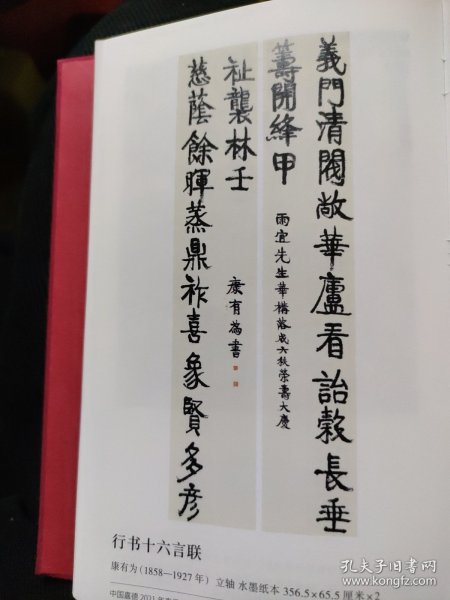 義門清閥敞華廬看詒穀長垂
籌開絳甲
雨宜先生華構落成六秩榮壽大慶
慈蔭餘暉蒸鼎祚喜象賢多彥
祉襲林壬
康有為書
行书十六言联
康有为(1858—1927年) 立轴 水墨纸本 356.5×65.5厘米×2
中国嘉德2021年
孔夫子旧书网